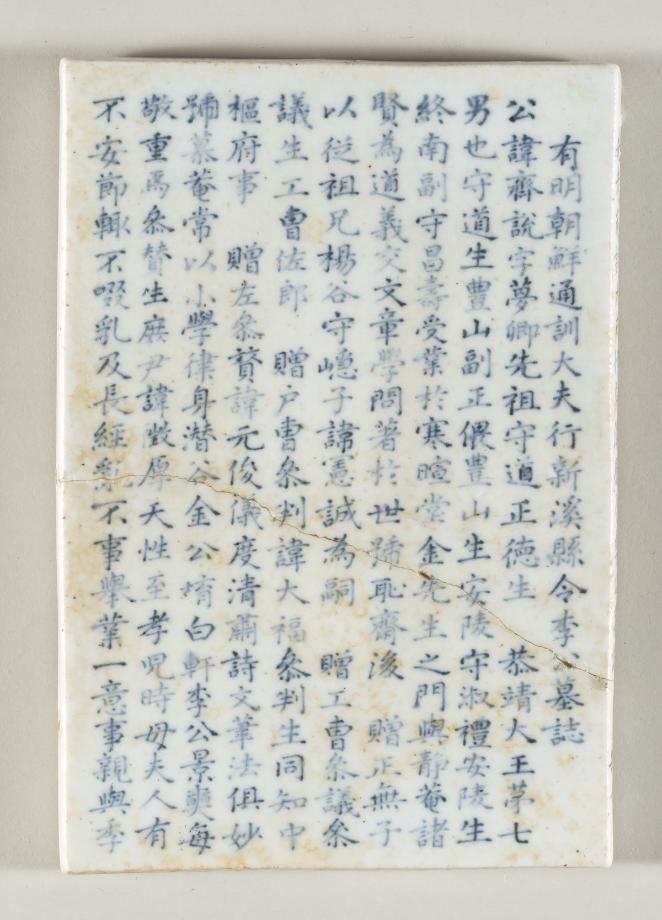 有明朝鮮通訓大夫行新溪縣令李公墓誌
公諱齊說字夢卿先祖守道正德生 恭靖大王苐七
男也守道生豊山副正偎豊山生安陵守淑禮安陵生
終南副守昌壽受業於寒暄堂金先生之門與靜菴諸
賢為道義交文章學問著於世號恥齋後 贈正無子
以從祖兄楊谷守嶾子諱憲誠為嗣 贈工曺叅議叅
議生工曺佐郎 贈戶曺叅判諱大福叅判生同知中
樞府事 贈左叅贊諱元俊儀度清肅詩文筆法俱妙
號慕菴常以小學律身潜谷金公堉白軒李公景奭每
敬重焉叅贊生庶尹諱厚天性至孝児時母夫人有
不安節輙不啜乳及長經亂不事舉業一意事親與季